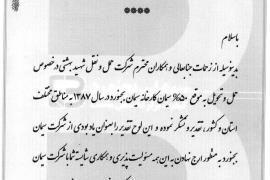 باسلام
بدینوسیله از زحمات جنابعالی و همکاران محترم شرکت حمل و نقل شهید بهشتی در خصوص
حمل و تحویل به موقع ۵۰٪ سیمان کارخانه سیمان بجنورد در سال ۱۳۸۷ به مناطق مختلف
استان و کشور، تقدیر و تشکر نموده و این لوح تقدیر را به عنوان یادبودی از شرکت سیمان
بجنورد به منظور ارج نهادن به این همه مسئولیت پذیری و همکاری شائبه شما با شرکت سیمان